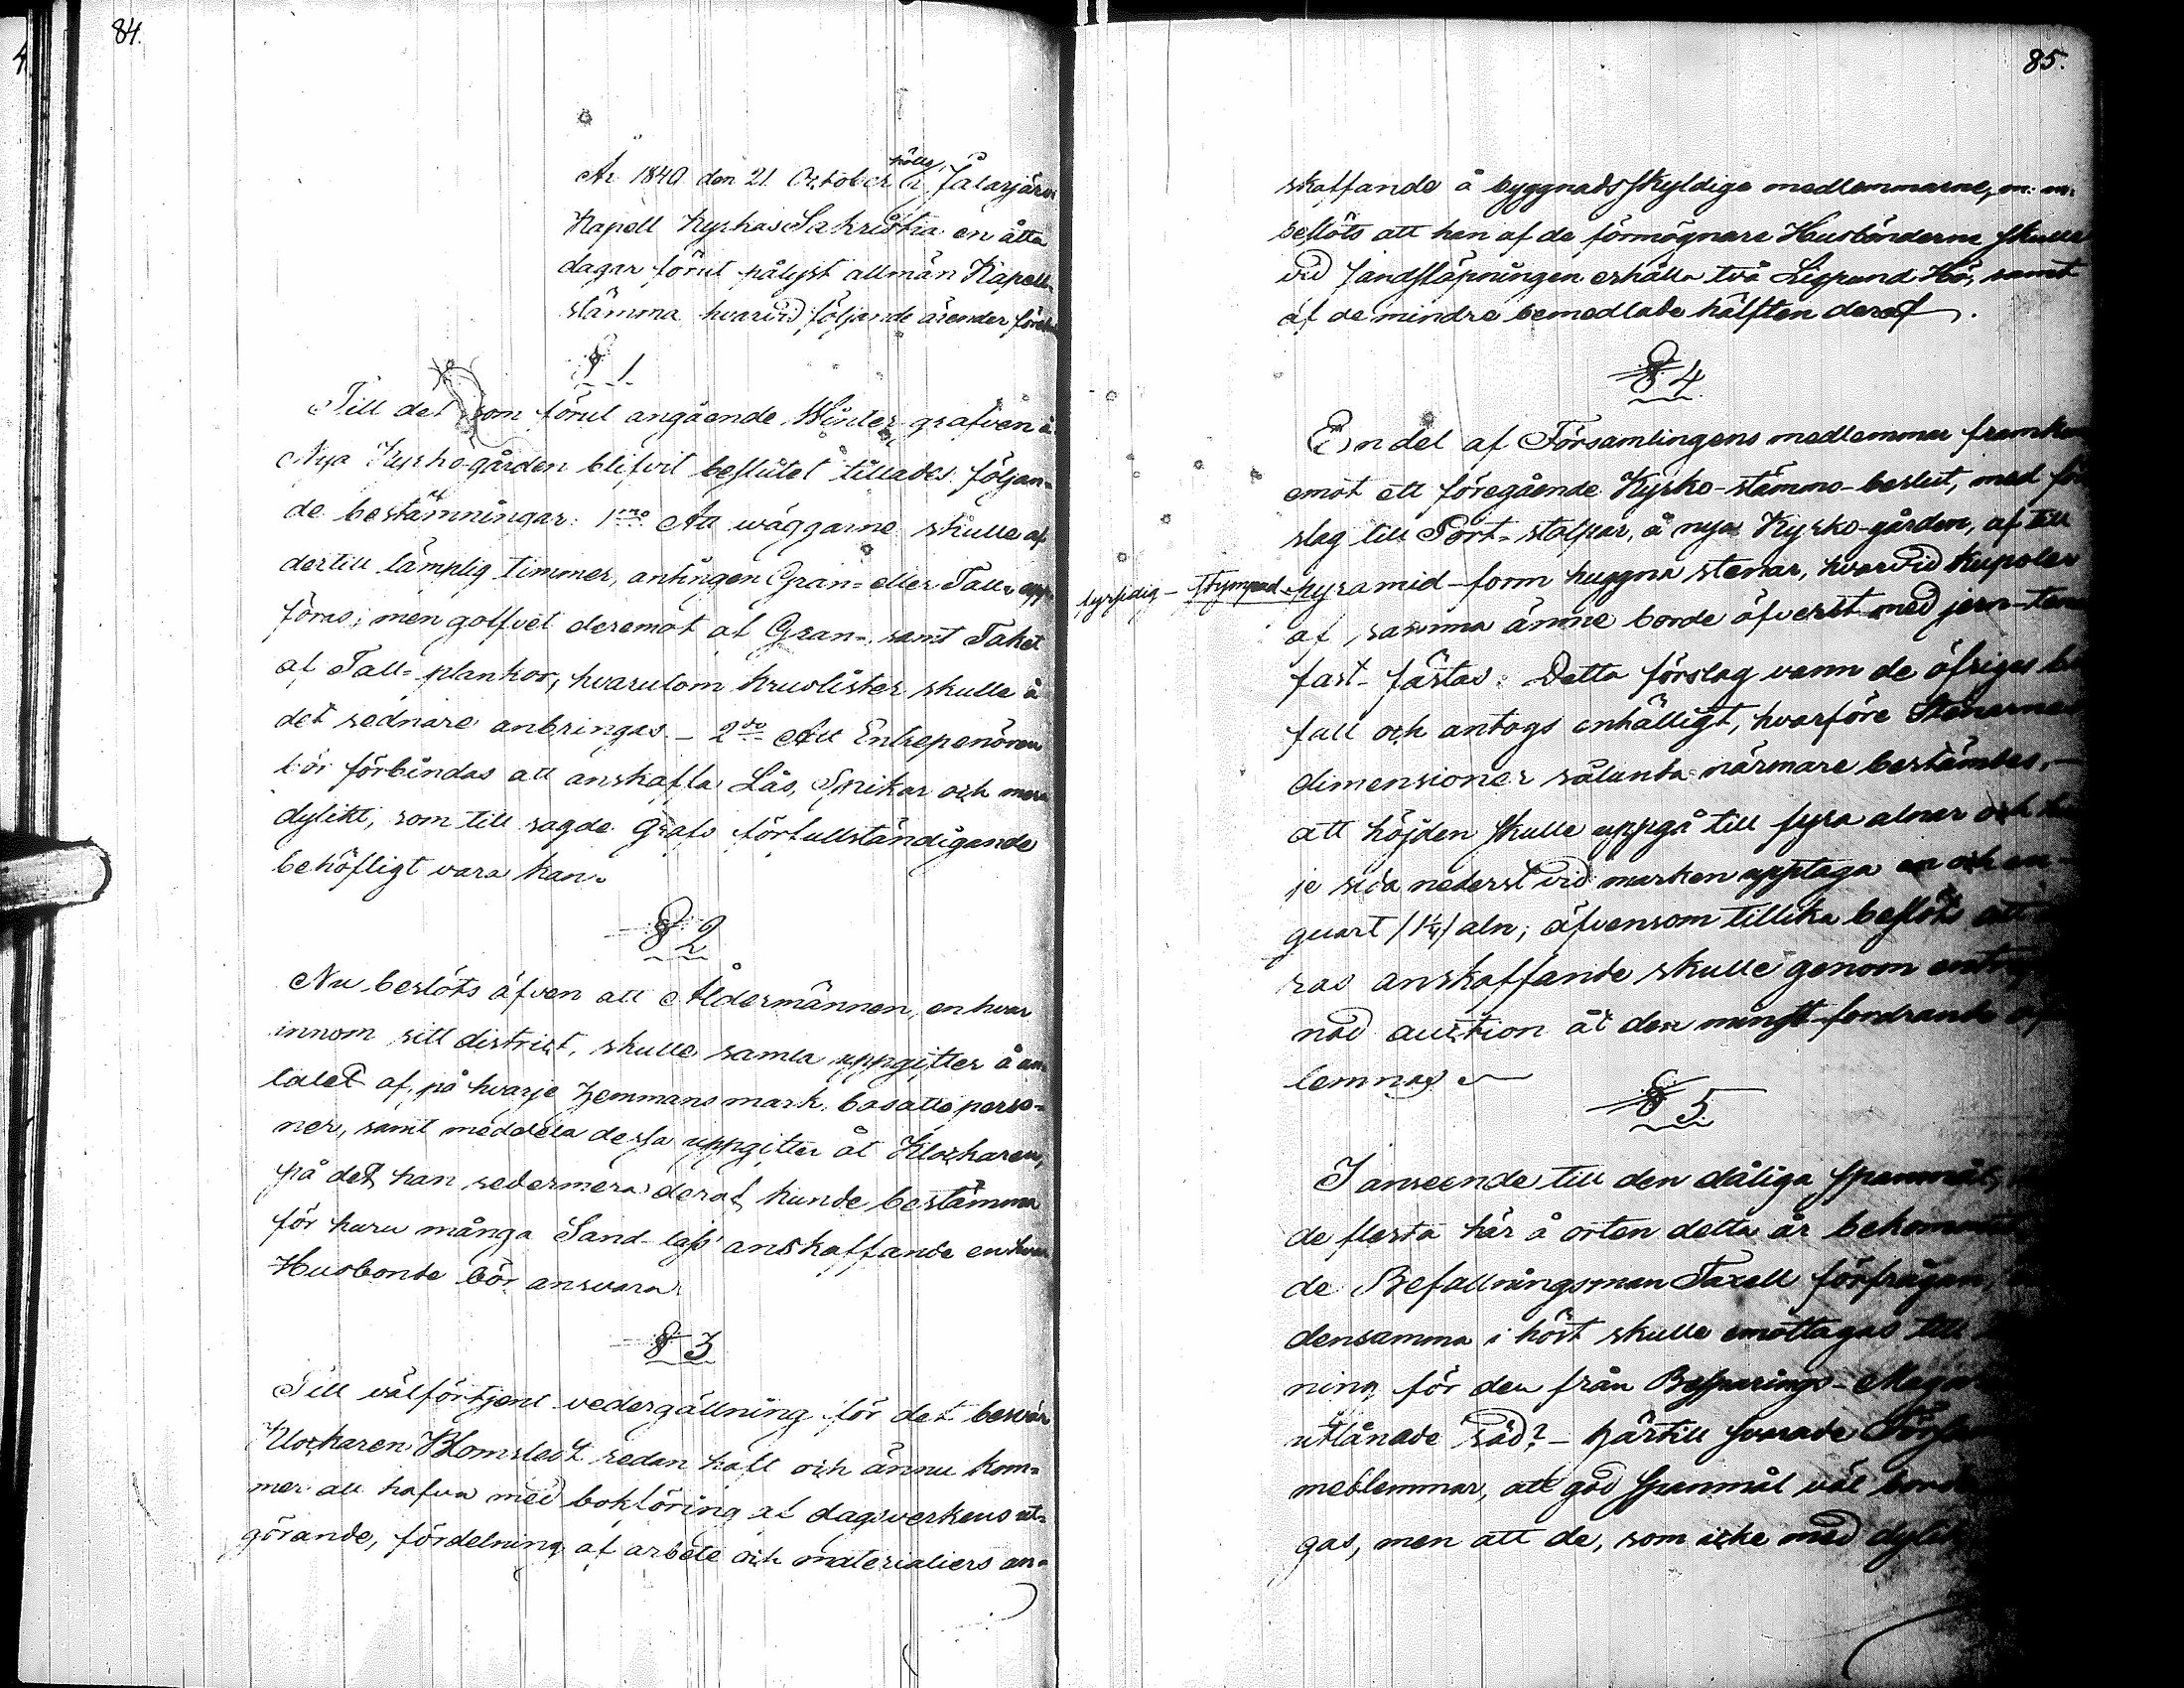 84.
År 1840 den 21 October hölls i Jalasjärvi
Kapell Kyrkas Sakristia en åtta
dagar förut pålyst allmän Kapell-
stämma hvarvid följande ärender före
§ 1
Till det som förut angående Winter-grafven å
Nya Kyrko-gården blifvit beslutet tillades följan-
de bestämningar: 1mo Att wäggarne skulle af
dertill lämplig timmer, antingen Gran- eller Tall- upp-
föras; men golfvet deremot af Gran- samt Taket
af Tall-plankor, hvarutom kruslister skulle å
det sednare anbringas. – 2do Att Entrepenören
bör förbindas att anskaffa Lås, Spikar och mera
dylikt, som till sagde Grafs förfullständigande
behöfligt vara kan.
§ 2
Nu beslöts äfven att Åldermännen, en hvar
innom sitt district, skulle samla uppgifter å an-
talet af på hvarje hemmans mark bosatte perso-
ner, samt meddela dessa uppgifter åt Klockaren,
på det han sedermera deraf kunde bestämma
för huru många Sand-lass' anskaffande en hvar
Husbonde bör ansvara.
§ 3
Till välförtjent vedergällning för det besvär
Klockaren Blomstedt redan haft och ännu kom-
mer att hafva med bokföring af dagsverkens ut-
görande, fördelning af arbete och materialiers an-
85.
skaffande å byggnadsskyldige medlemmarne, m. m.
beslöts att han af de förmögnare Husbönderne skulle
vid sandsläpningen erhålla två Lispund Hö, samt
af de mindre bemedlade hälften deraf.
§ 4
En del af Församlingens medlemmar framkom
emot ett föregående Kyrko-stämmo-beslut, med för
slag till Port-stolpar, å nya Kyrko-gården, af till
fyrsidig – stympad – pyramid-form huggna stenar, hvarvid Kupoler
af samma ämne borde öfverst med jern-ten
fast-fästas. Detta förslag vann de öfriges bi
fall och antogs enhälligt, hvarföre Stenarnes
dimensioner sålunda närmare bestämdes, –
att höjden skulle uppgå till fyra alnar och
je sida nederst vid marken upptaga en och en
quart /1¼/ aln; äfvensom tillika beslöts att
ras anskaffande skulle genom
nad auction åt den minst fordrande
lemnas
§ 5
I anseende till den dåliga spannmål,
de flesta här å orten detta år bekommit
de Befallningsman Taxell förfrågan,
densamma i höst skulle emottagas till
ning för den från Besparings-Maga
utlånade säd? – härtill svarade Försam
medlemmar, att god spanmål väl borde
gas, men att de, som icke med dylik